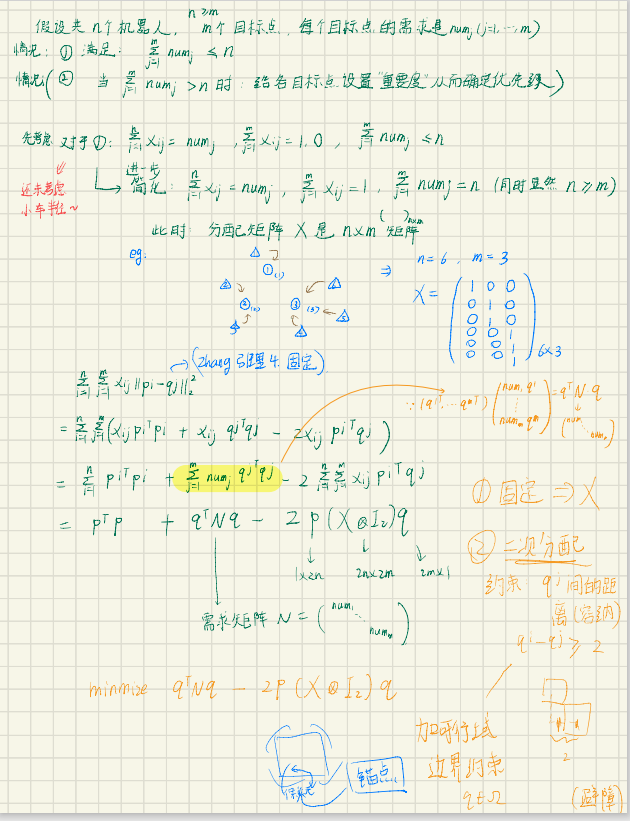 n≥m
假设共 n个机器人, m个目标点, 每个目标点的需求是 num_j (j=1,…,m)
情况: ① 满足: ∑_{j=1}^{m} num_j ≤ n
情况(② 当 ∑_{j=1}^{m} num_j > n 时: 给各目标点设置"重要度"从而确定优先级)
先考虑 对于①: ∑_{i=1}^{n} x_ij = num_j , ∑_{j=1}^{m} x_ij = 1,0 , ∑_{j=1}^{m} num_j ≤ n
还未考虑
小车半径~
进一步
简化: ∑_{i=1}^{n} x_ij = num_j , ∑_{j=1}^{m} x_ij = 1 , ∑_{j=1}^{m} num_j = n (同时显然 n≥m)
此时: 分配矩阵 X 是 n×m 矩阵 ( )_{n×m}
eg:
① (1)
② (2)
③ (3)
⇒ n=6 , m=3
X =
1 0 0
0 1 0
0 1 0
0 0 1
0 0 1
6×3
(Zhang 引理4. 固定)
∑_{i=1}^{n} ∑_{j=1}^{m} x_ij ||pi-qj||_2^2
= ∑_{i=1}^{n} ∑_{j=1}^{m} (x_ij pi^T pi + x_ij qj^T qj - 2x_ij pi^T qj)
∵ (q1^T … qm^T) (num_1 q1 ⋮ num_m qm) = q^T N q
(num_1 ⋱ num_m)
= ∑_{i=1}^{n} pi^T pi + ∑_{j=1}^{m} num_j qj^T qj - 2 ∑_{i=1}^{n} ∑_{j=1}^{m} x_ij pi^T qj
= p^T p + q^T N q - 2 p (X ⊗ I_2) q
1×2n 2n×2m 2m×1
需求矩阵 N = (num_1 ⋱ num_m)
① 固定 ⇒ X
② 二次分配
约束 qj 间的距
离 (容纳)
qi-qj ≥ 2
2
minmize q^T N q - 2p (X ⊗ I_2) q
加可行域
边界约束
q∈Ω
锚点
(避障)